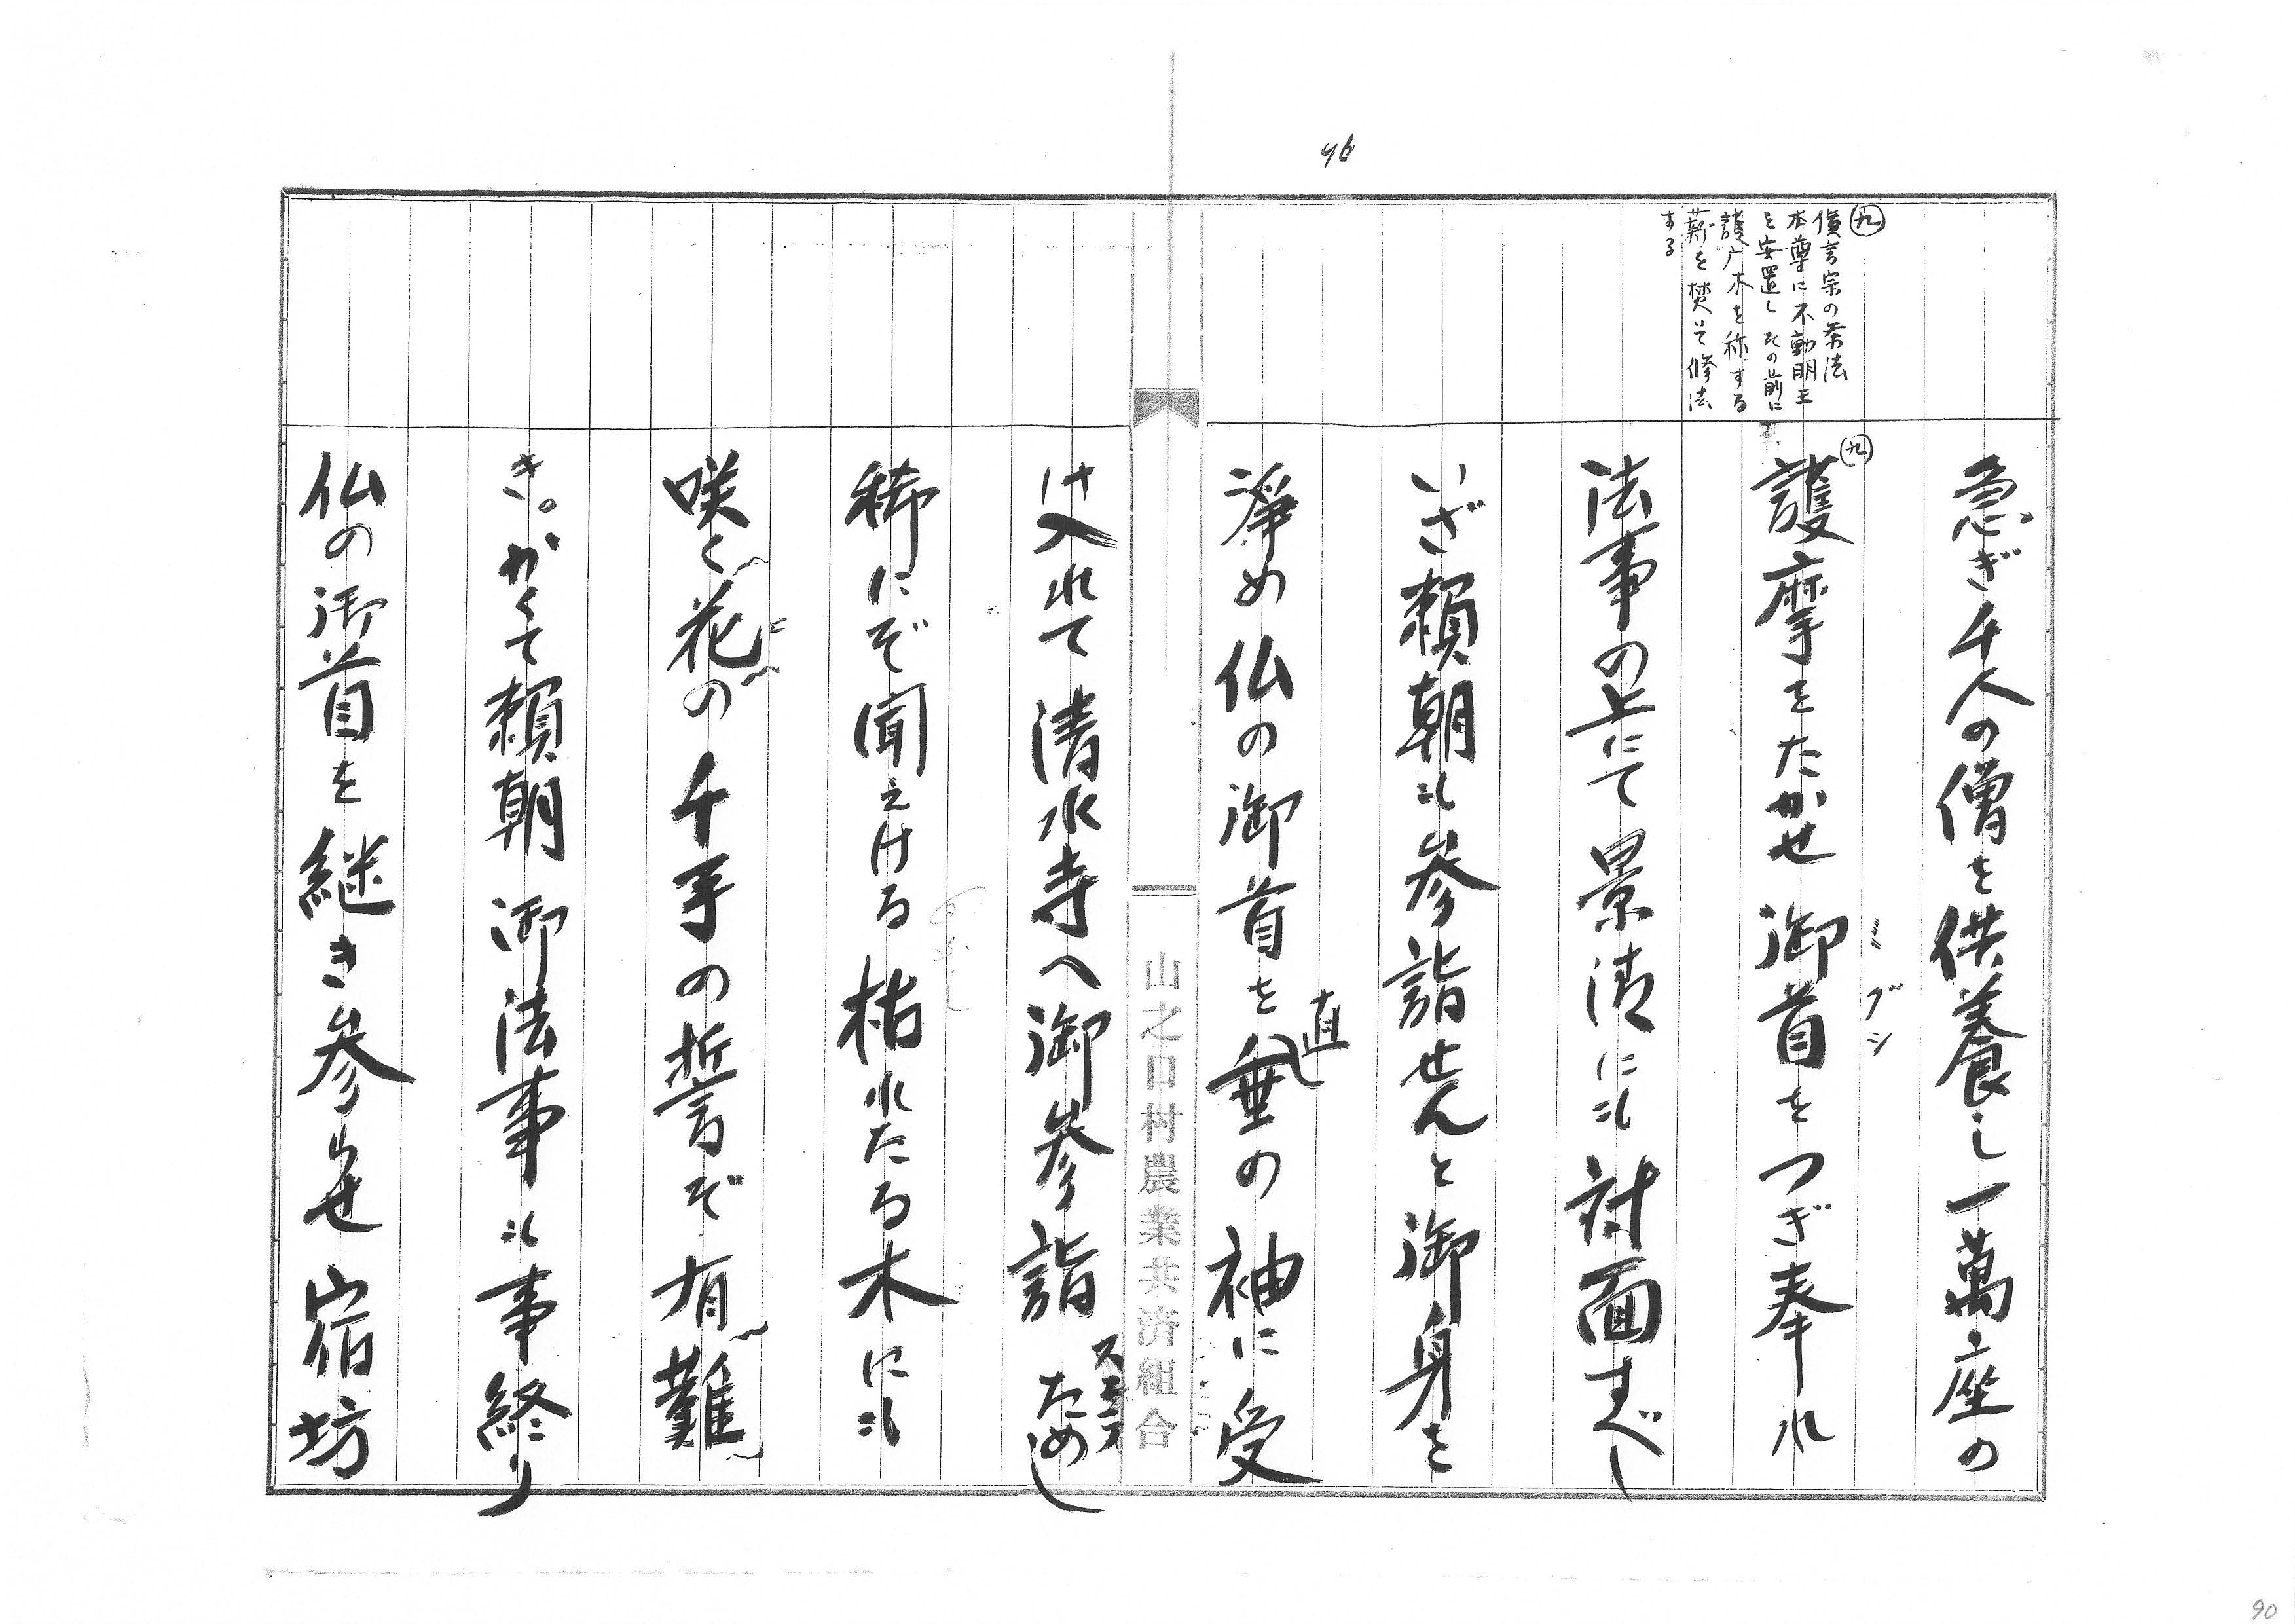 96
㊈
真言宗の祭法
本尊に不動明王
を安置しその前に
護广木を称する
薪を焚いて修法
する
急ぎ千人の僧を供養し一萬座の
㊈
護摩をたかせ御首をつぎ奉れ
ミグシ
法事の上にて景清にも対面すべし
いざ頼朝も参詣せんと御身を
浄め仏の御首を垂の袖に受
直
け入れて清水寺へ御参詣ためし
山之口村農業共済組合
稀にぞ聞えける枯れたる木にも
咲く花の千手の誓ぞ有難
と
き。かくて頼朝御法事も事終り
仏の御首を継き参らせ宿坊
90